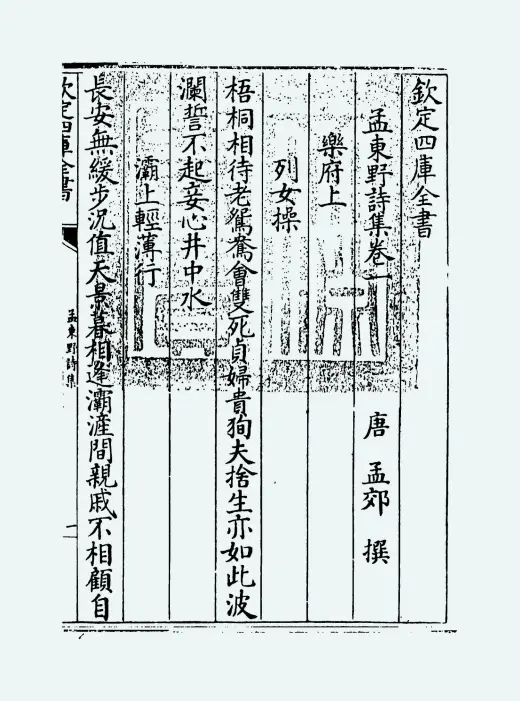 欽定四庫全書
孟東野詩集卷一 唐 孟郊 撰
樂府上
列女操
梧桐相待老鴛鴦會雙死貞婦貴狥夫捨生亦如此波
瀾誓不起妾心井中水
灞上輕薄行
長安無緩步況值天景暮相逢灞滻間親戚不相顧自
欽定四庫全書
孟東野詩集
一